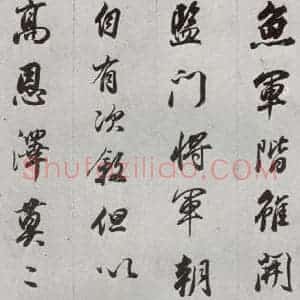 魚軍階雖開
監門將軍朝
自有次叙但以
高恩澤莫二
shufaziliao.com